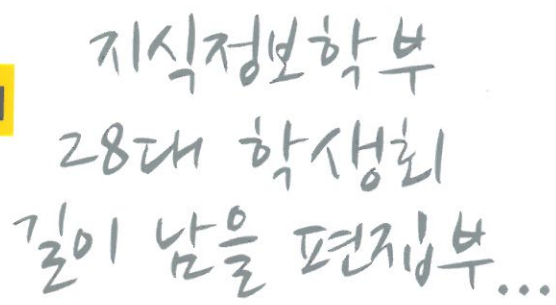 지식정보학부
28대 학생회
길이 남을 편집부...